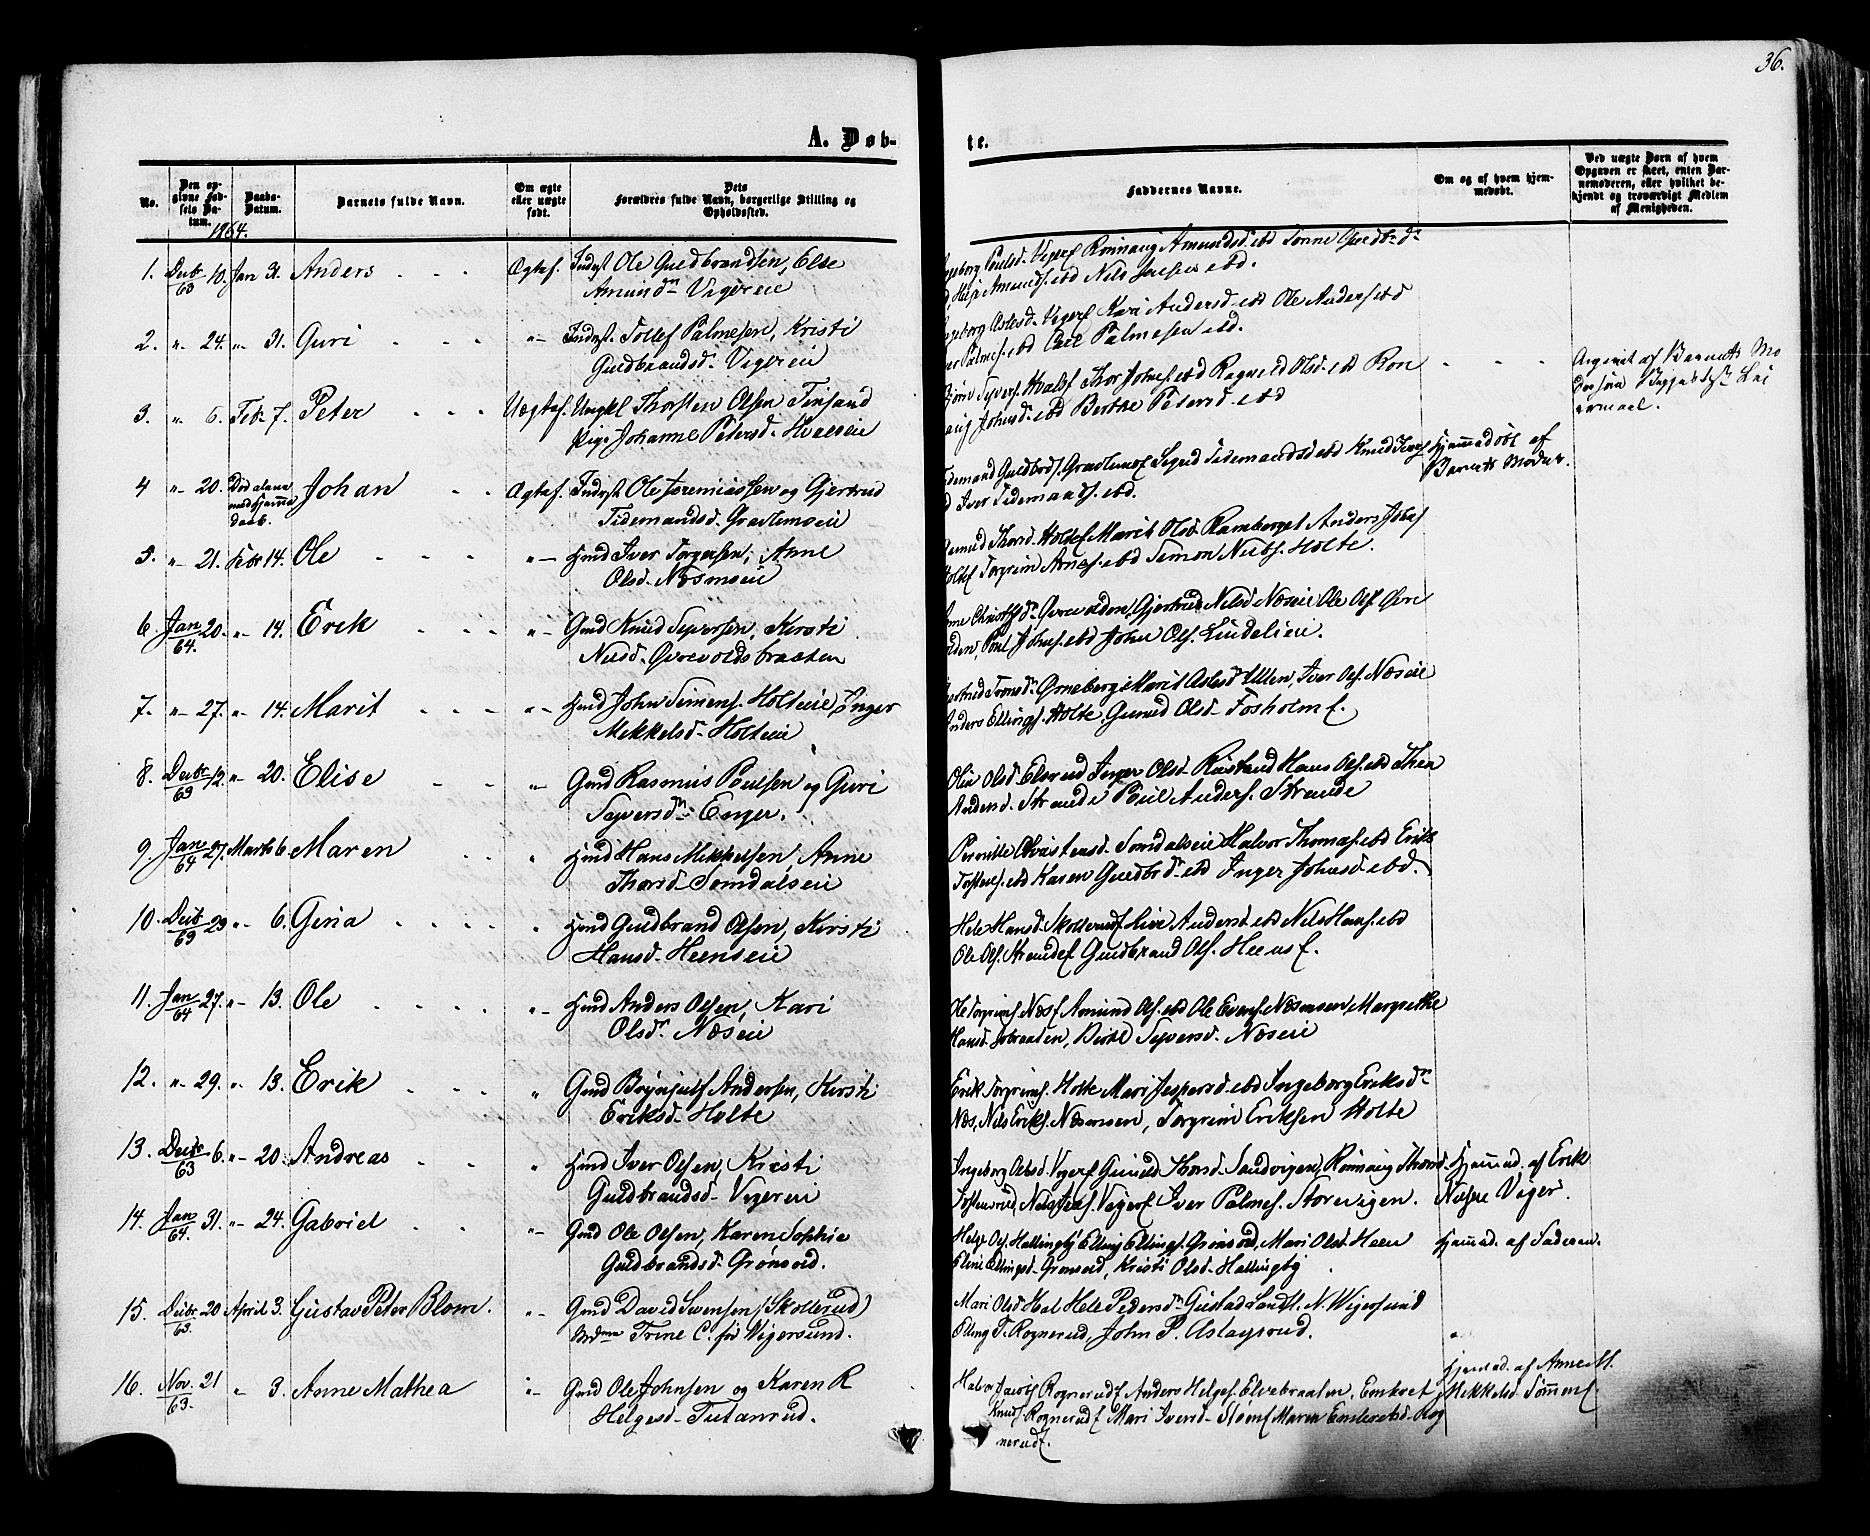 36.
A. Døb-
te.
No.
Den op-
givne Fød-
sels Da-
tum.
Daabs-
Datum.
Barnets fulde Navn.
Om ægte
eller uægte
født.
Dets
Forældres fulde Navn, borgerlige Stilling og
Opholdssted.
Faddernes Navne.
Om og af hvem hjem-
medøbt.
Ved uægte Børn af hvem
Opgaven er skeet, enten Bar-
nemoderen, eller hvilket be-
kjendt og troværdigt Medlem
af Menigheden.
1864.
1. Decbr 63 10. Jan 31. Anders Ægtef. Inderst Ole Guldbrandsen, Else
Amundsdr Vegereie
Ingeborg Poulsd. Vegerf Rønnaug Amundsd ibd Tonne Guldbdr
Helge Amunds. ibd Nils ibd.
2. " 24. " 31. Guri "- Inderst. Tollef Palmesen, Kristi
Guldbrandsd. Vegereie
Ingeborg Aslesd. Vegerf Kari Andersd ibd Ole Anders ibd
Palmes. ibd Carl Palmesen ibd.
3. " 6. Feb. 7. Peter Uægtef. Ungkl Thorsten Olsen Finsand
Pige Johanne Pedersd. Hvalseie
Syvers. Hvalsf Thor Johns. ibd Ragnild Olsd. ibd Røn
aug Johnsd. ibd Berthe Petersd ibd
Angivet af Barnets Mo
der
4 "- 20. Død alene
med Hjemme
daab. Johan Ægtef. Inderst Ole Jeremiassen og Gjertrud
Tidemandsd. Græslemseie
Tidemand Guldbrds. Græslemsf Sigrid Tidemandsd ibd Knud Ivers
Iver Tidemands. ibd.
Hjemmedøbt af
Barnets Moder.
5. "- 21. Febr 14. Ole "- Hmd Iver Torgersen, Anne
Olsd. Næsmoeie
Gunild Thorsd. Holtef Marit Olsd. Ramberget Anders Johns
Holtef Torgrim Arnes. ibd Simon Nubs. Holte.
6. Jan 64. 20. "- 14. Erik "- Gmd Knud Syversen, Kirsti
Nilsd. Øvrevoldsbraaten
Anne Christophsdr Øvrevolden, Gjertrud Nilsd Næseie Ole Ols. Øvre
volden, Poul Johns. ibd John Ols. Lindelieie.
7. "- 27. "- 14. Marit "- Hmd John Simens. Holteeie Inger
Mekkelsd. Holteeie
Gjertrud Tronsdr Ørneberg Marit Aslesd Ullern, Iver Ols. Næseie
Anders Ellings. Holte, Gunild Olsd. Fosholmf.
8. Decbr 63 12. "- 20. Elise "- Gmd Rasmus Poulsen og Guri
Syversdr. Enger.
Olia Olsd. Elsrud Inger Olsd. Røstand Hans Ols. ibd Thea
Andersd. Strande Poul Anders. Strande
9. Jan 64 27. Marts 6. Maren " Hmd Hans Mekkelsen, Anne
Thorsd. Somdalseie
Pernille Christensd. Somdalseie Halvor Thomas. ibd Erik
Torstens. ibd Karen Guldbrd. ibd Inger Johnsd. ibd.
10. Decb 63 29 "- 6. Gina " Hmd Guldbrand Olsen, Kirsti
Hansd. Heenseie
Hele Hansd. Skollerudf Live Andersd. ibd Nils Hans. ibd
Ole Ols. Strandef Guldbrand Ols. Heensf.
11. Jan 64 27. "- 13. Ole "- Hmd Anders Olsen, Kari
Olsdr Næseie
Ole Torgrims. Næsf Amund Ols. ibd Ole Evens. Næsmoen, Margrethe
Hansd. braaten, Berthe Syversd. Næseie
12. "- 29. "- 13. Erik " Gmd Brynjulf Andersen, Kirsti
Eriksd. Holte
Erik Torgrims. Holte Mari Jespersd. ibd Ingeborg Eriksdr
Næs, Nils Eriks. Næsmoen, Torgrim Eriksen Holte
13. Decbr 63 6. "- 20. Andreas " Hmd Iver Olsen, Kristi
Guldbrandsd. Vegereie
Ingeborg Olsd. Vegerf Gunild Thorsd. Sandvigen, Rønnaug Thorsd.
Vegerf Iver Palmes. Storevigen.
Hjemmed. af Erik
Veger.
14. Jan 64. 31. "- 24. Gabriel "- Gmd Ole Olsen, Karen Sophie
Guldbrandsd. Grønvold.
Helge Ols. Hallingby Elling Ellings. Grønvold, Mari Olsd. Heen
Eline Ellingsd. Grønvold, Kristi Olsd. Hallingby
Hjemmed. af Faderen.
15. Decbr 63. 20 April 3. Gustav Peter Blom. "- Gmd David Svensen (Skollerud)
Mdme Trine C. fra Vigersund.
Mari Olsd Hval Hele Pedersdr Gustad N. Vigersund
Elling T. Rognerud, John P. Aslagsrud.
16. Nov. 63. 21 " 3. Anne Mathea "- Gmd Ole Johnsen og Karen R
Helgesd. Tutanrud.
Halvor Rognerudf Anders Helges. Elvebraaten, Embret
Knuds. Rognerudf Mari Iversd. Maren Embretsd. Rog
nerudf.
Hjemmed. af Anne M.
Mekkelsd.